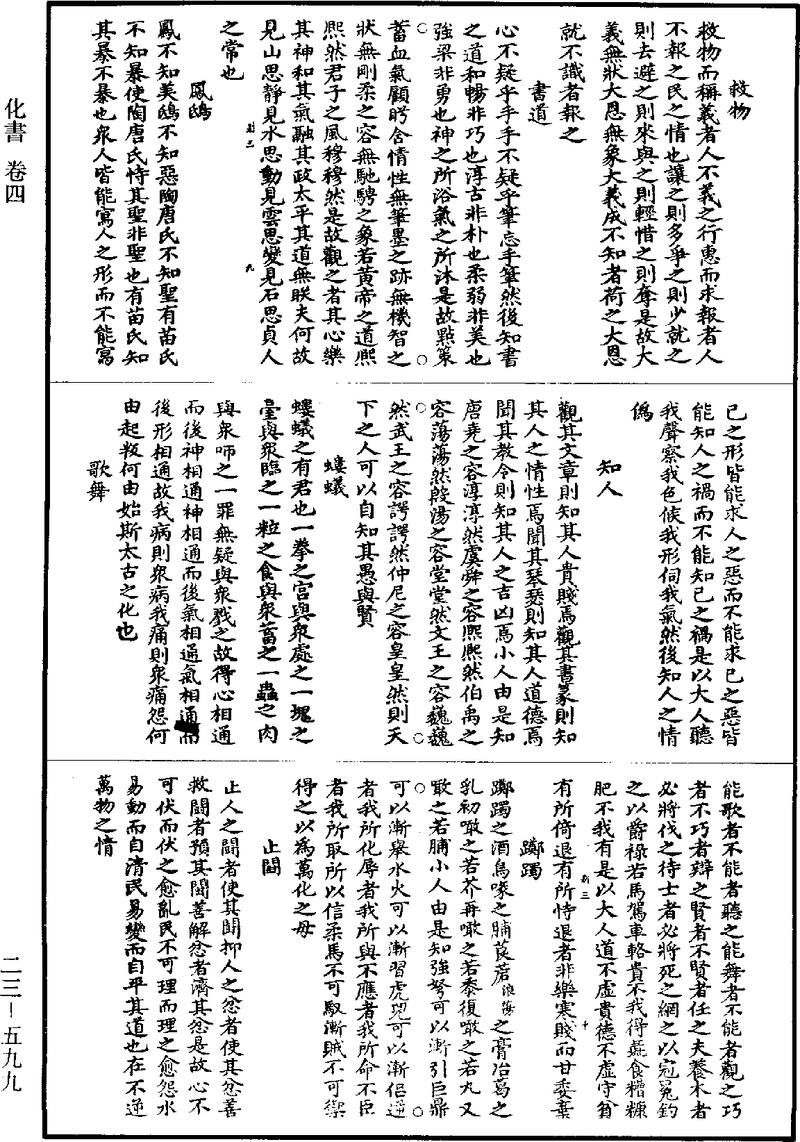 化書 卷四
二三—五九九
救物
救物而稱義者人不義之行惠而求報者人
不報之民之情也讓之則多爭之則少就之
則去避之則來與之則輕惜之則奪是故大
義無狀大恩無象大義成不知者荷之大恩
就不識者報之
書道
心不疑乎手手不疑乎筆忘手筆然後知書
之道和暢非巧也淳古非朴也柔弱非美也
強梁非勇也神之所浴氣之所沐是故點策
蓄血氣顧盻含情性無筆墨之跡無機智之
狀無剛柔之容無馳騁之象若黃帝之道熙
熙然君子之風穆穆然是故觀之者其心樂
其神和其氣融其政太平其道無朕夫何故
見山思靜見水思動見雲思變見石思貞人
之常也
鳳鴟
鳳不知美鴟不知惡陶唐氏不知聖有苗氏
不知暴使陶唐氏恃其聖非聖也有苗氏知
其暴不暴也衆人皆能寫人之形而不能寫
己之形皆能求人之惡而不能求己之惡皆
能知人之禍而不能知己之禍是以大人聽
我聲察我色候我形伺我氣然後知人之情
僞
知人
觀其文章則知其人貴賤焉觀其書篆則知
其人之情性焉聞其琴瑟則知其人道德焉
聞其教令則知其人之吉凶焉小人由是知
唐堯之容淳淳然虞舜之容熙熙然伯禹之
容蕩蕩然殷湯之容堂堂然文王之容巍巍
然武王之容諤諤然仲尼之容皇皇然則天
下之人可以自知其愚與賢
螻蟻
螻蟻之有君也一拳之宮與衆處之一塊之
臺與衆臨之一粒之食與衆蓄之一蟲之肉
與衆咂之一罪無疑與衆戮之故得心相通
而後神相通神相通而後氣相通氣相通而
後形相通故我病則衆病我痛則衆痛怨何
由起叛何由始斯太古之化也
歌舞
能歌者不能者聽之能舞者不能者觀之巧
者不巧者辯之賢者不賢者任之夫養木者
必將伐之待士者必將死之網之以冠冕釣
之以爵祿若馬駕車輅貴不我得彘食糟糠
肥不我有是以大人道不虛貴德不虛守貧
有所倚退有所恃退者非樂寒賤而甘委棄
躑躅
躑躅之酒烏喙之脯莨菪浪蕩之膏冶葛之
乳初噉之若芥再噉之若黍復噉之若丸又
噉之若脯小人由是知強弩可以漸引巨鼎
可以漸舉水火可以漸習虎兕可以漸侶逆
者我所化辱者我所與不應者我所命不臣
者我所取所以信柔馬不可馭漸賊不可禦
得之以為萬化之母
止鬪
止人之鬪者使其鬪抑人之忿者使其忿善
救鬪者預其鬪善解忿者濟其忿是故心不
可伏而伏之愈亂民不可理而理之愈怨水
易動而自清民易變而自平其道也在不逆
萬物之情